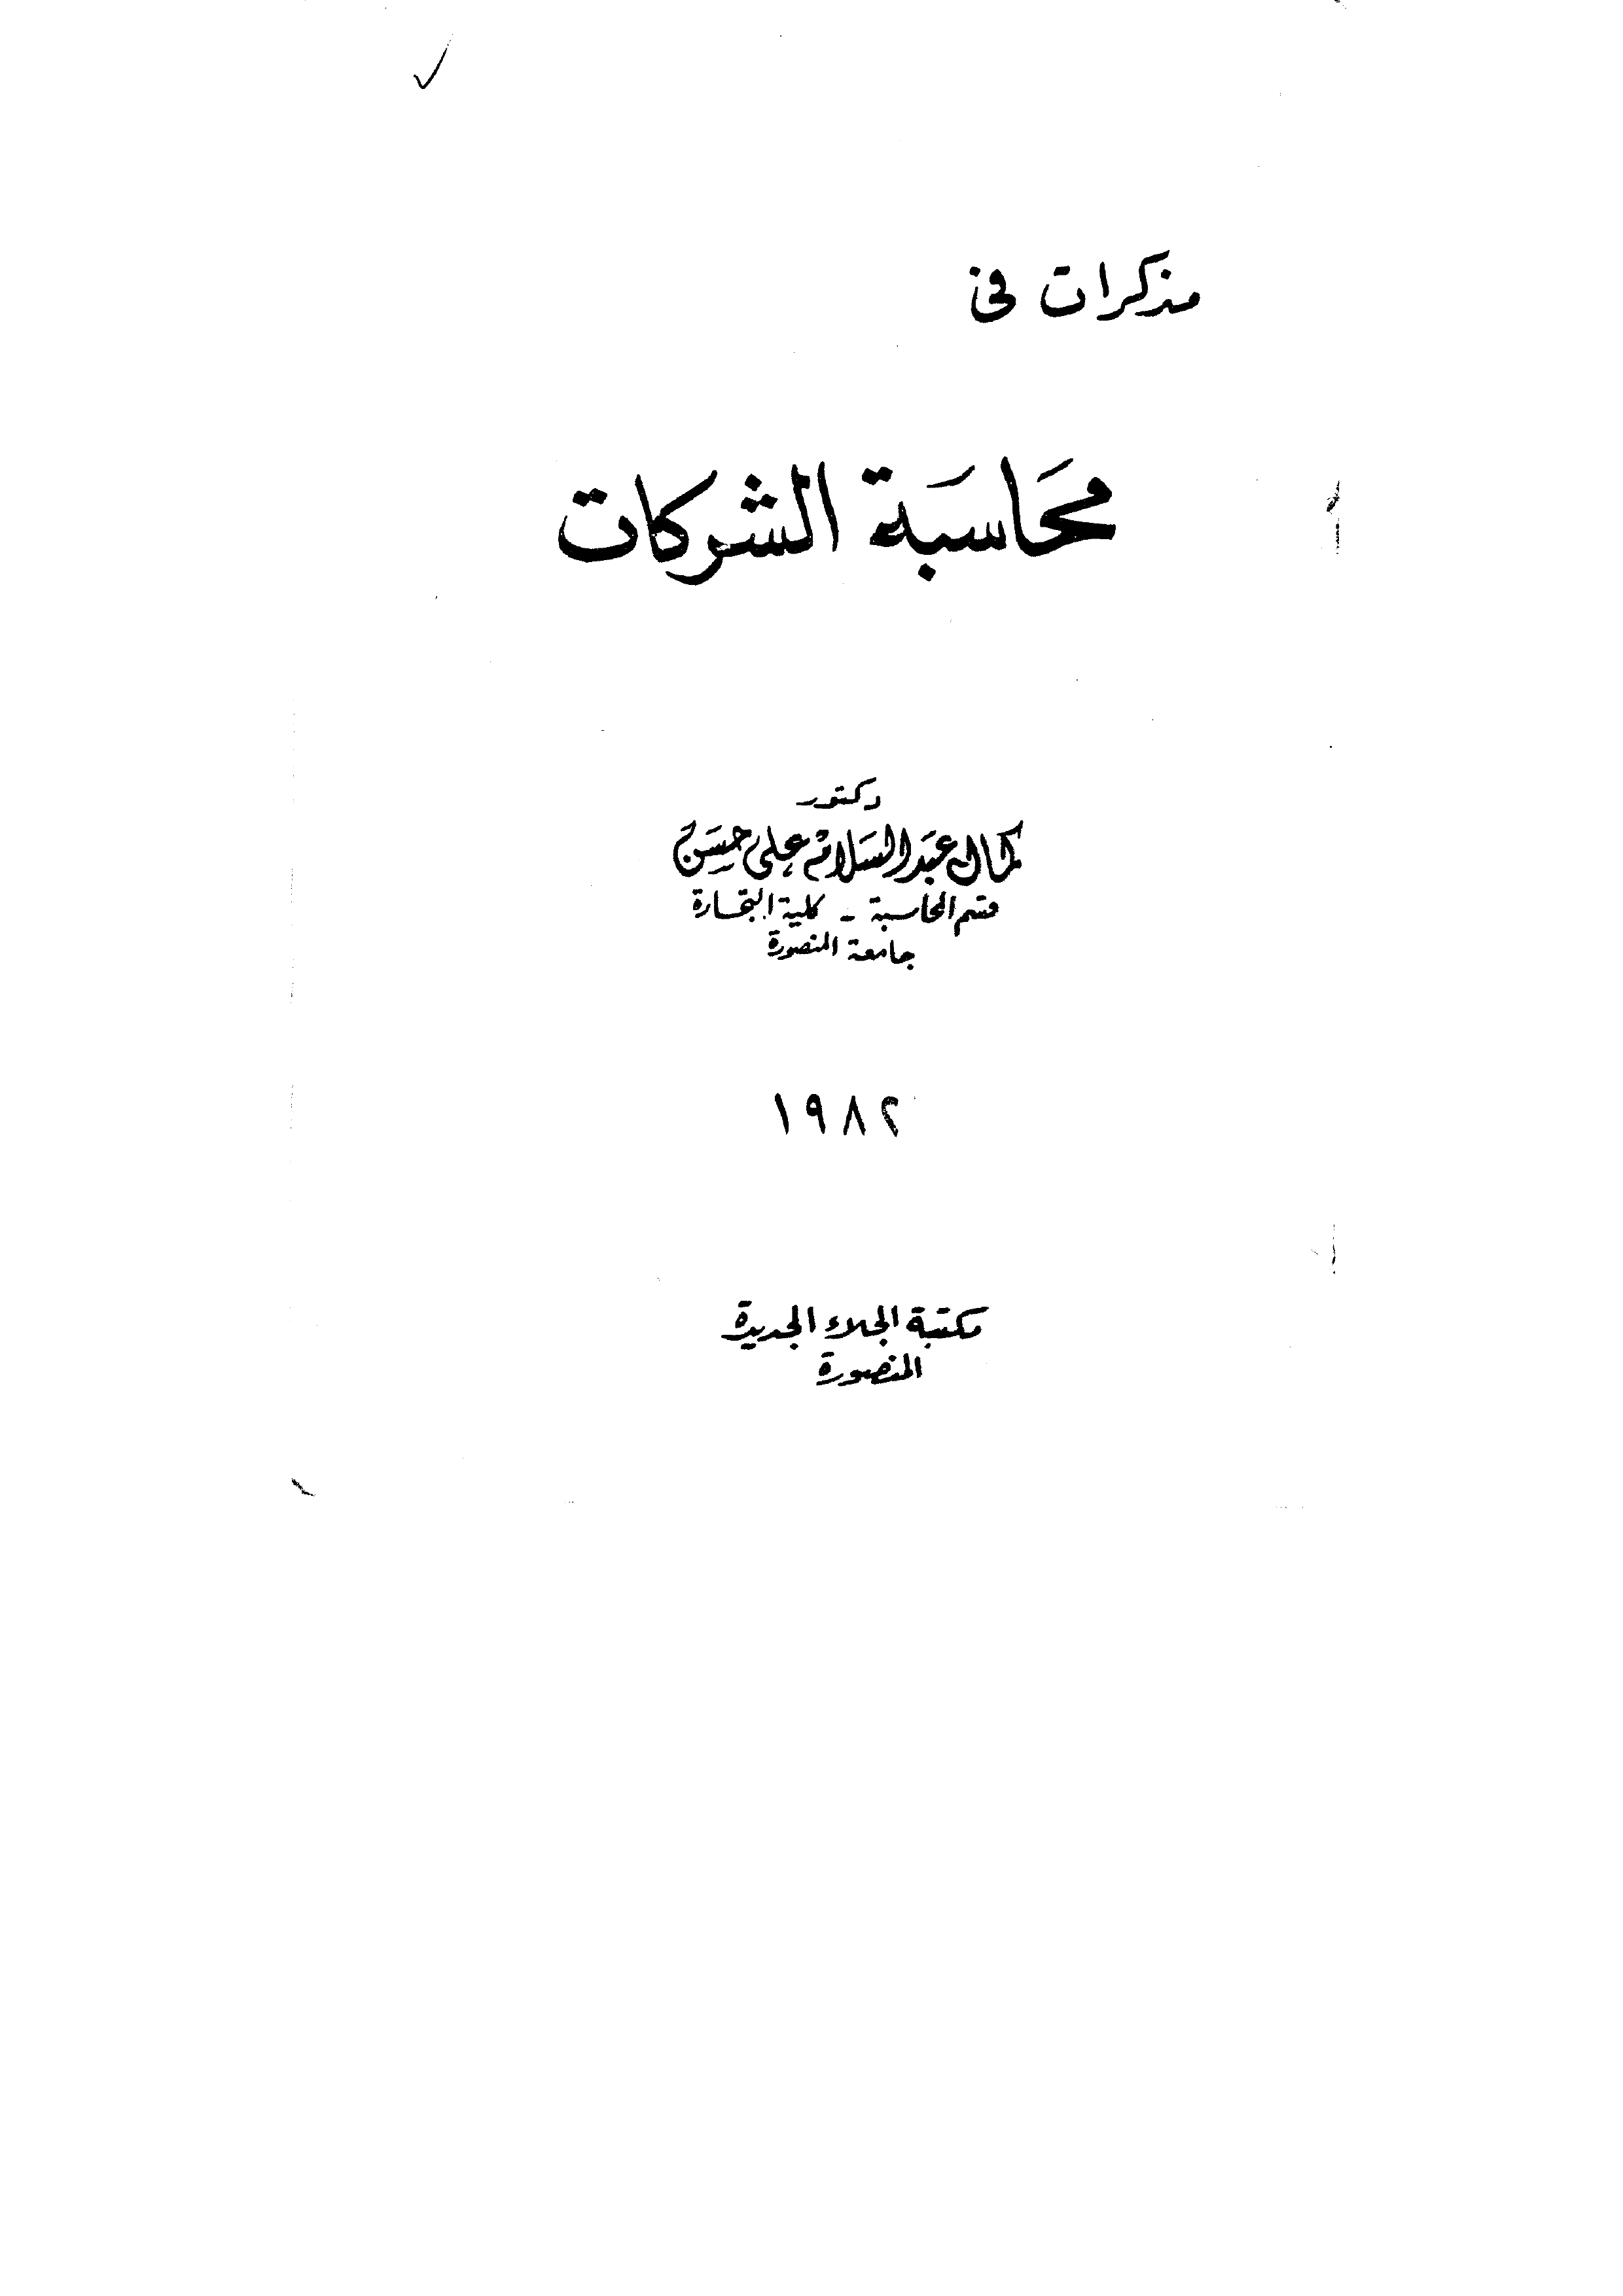 مذكرات فى
محَاسَبة الشركات
دكتور
كمال عبد السلام على حسن
قسم المحاسبة - كلية التجارة
جامعة المنصورة
١٩٨٢
مكتبة الجلاء الجديدة
المنصورة